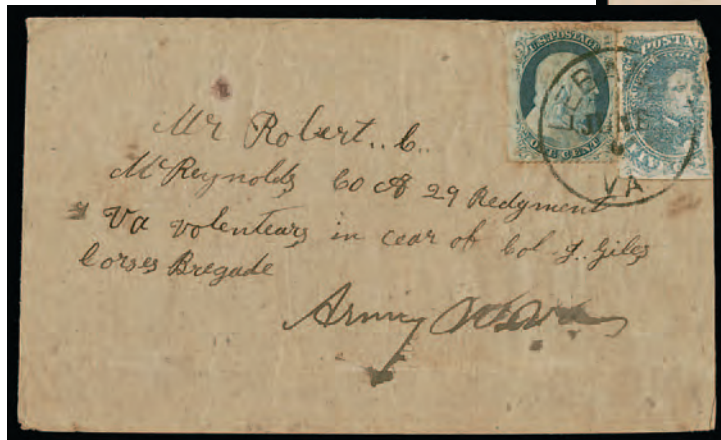 U.S. POSTAGE
ONE CENT
POSTAGE
FIVE
LEB
JUNE
6
VA
Mr Robert.. C..
McReynolds Co A 29 Redgment
Va volentears in cear of Col. J. Giles
Corses Bregade
Army